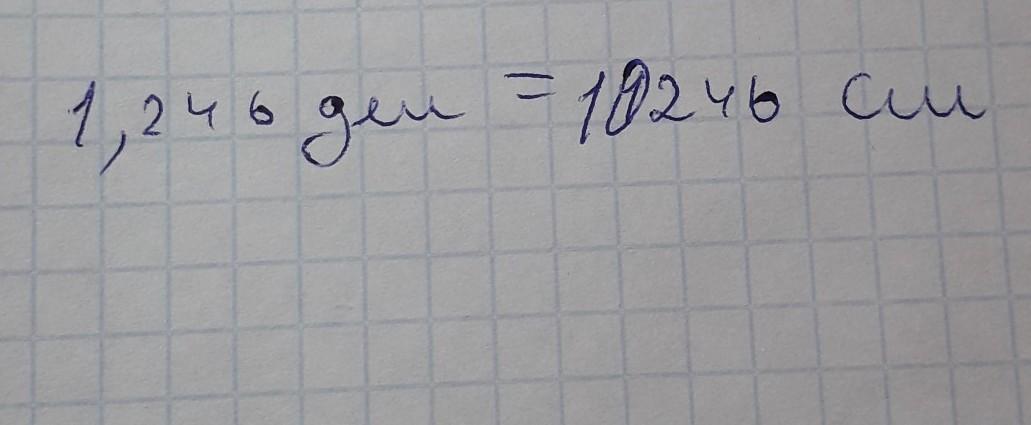 1,246 дм = 10246 см